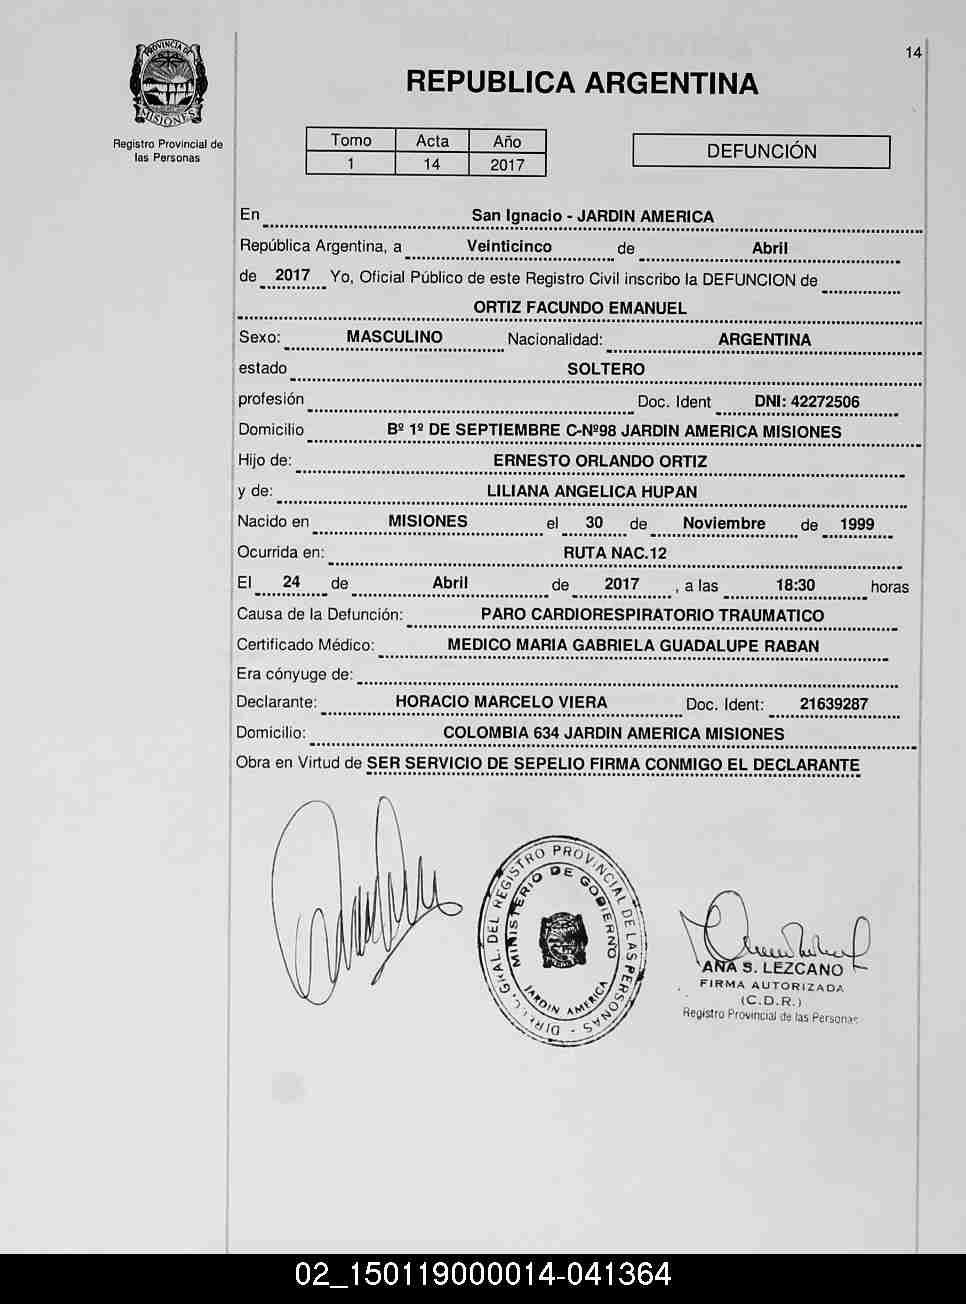 PROVINCIA DE
MISIONES
Registro Provincial de
las Personas
14
REPUBLICA ARGENTINA
Tomo Acta Año
1 14 2017
DEFUNCIÓN
En San Ignacio - JARDIN AMERICA
República Argentina, a Veinticinco de Abril
de 2017 Yo, Oficial Público de este Registro Civil inscribo la DEFUNCION de
ORTIZ FACUNDO EMANUEL
Sexo: MASCULINO Nacionalidad: ARGENTINA
estado SOLTERO
profesión Doc. Ident DNI: 42272506
Domicilio Bº 1º DE SEPTIEMBRE C-Nº98 JARDIN AMERICA MISIONES
Hijo de: ERNESTO ORLANDO ORTIZ
y de: LILIANA ANGELICA HUPAN
Nacido en MISIONES el 30 de Noviembre de 1999
Ocurrida en: RUTA NAC.12
El 24 de Abril de 2017 , a las 18:30 horas
Causa de la Defunción: PARO CARDIORESPIRATORIO TRAUMATICO
Certificado Médico: MEDICO MARIA GABRIELA GUADALUPE RABAN
Era cónyuge de:
Declarante: HORACIO MARCELO VIERA Doc. Ident: 21639287
Domicilio: COLOMBIA 634 JARDIN AMERICA MISIONES
Obra en Virtud de SER SERVICIO DE SEPELIO FIRMA CONMIGO EL DECLARANTE
GRAL. DEL REGISTRO PROVINCIAL DE LAS PERSONAS -
MINISTERIO DE GOBIERNO
JARDIN AMERICA
ANA S. LEZCANO
FIRMA AUTORIZADA
(C.D.R.)
Registro Provincial de las Personas
02_150119000014-041364